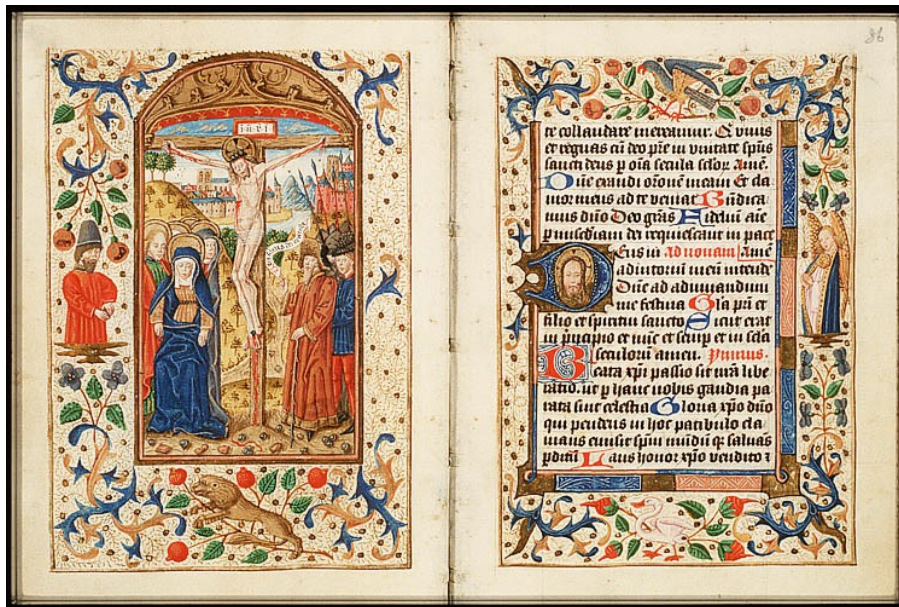 i n r i
86
te collaudare mereamur. Qui viuis
et regnas cū deo p̄re in vnitate sp̄us
sancti deus p oīa secula sc̄lor Amē.
Dn̄e exaudi or̄onē meam Et cla
mor meus ad te veniat Bn̄dica
mus dn̄o Deo grās Fidelui aīe
p misc̄diam dei requiescant in pace
Deus in ad nonam Amē
adiutoriū meū intende
Dn̄e ad adiuuandum
me festina Gl̄a pr̄i et
filio et spiritui sancto Sicut erat
in p̄ncipio et nūc et semp et in sc̄la
seculorū amen. Ymnus.
Beata xp̄i passio sit nr̄a libe
ratio ut p hanc nobis gaudia pa
rata sint celestia Gloria xp̄o dn̄o
qui pendens in hoc patibulo cla
mans emisit sp̄m mūdū q̄ saluās
p̄ditū Laus honor xp̄o vendito ⁊